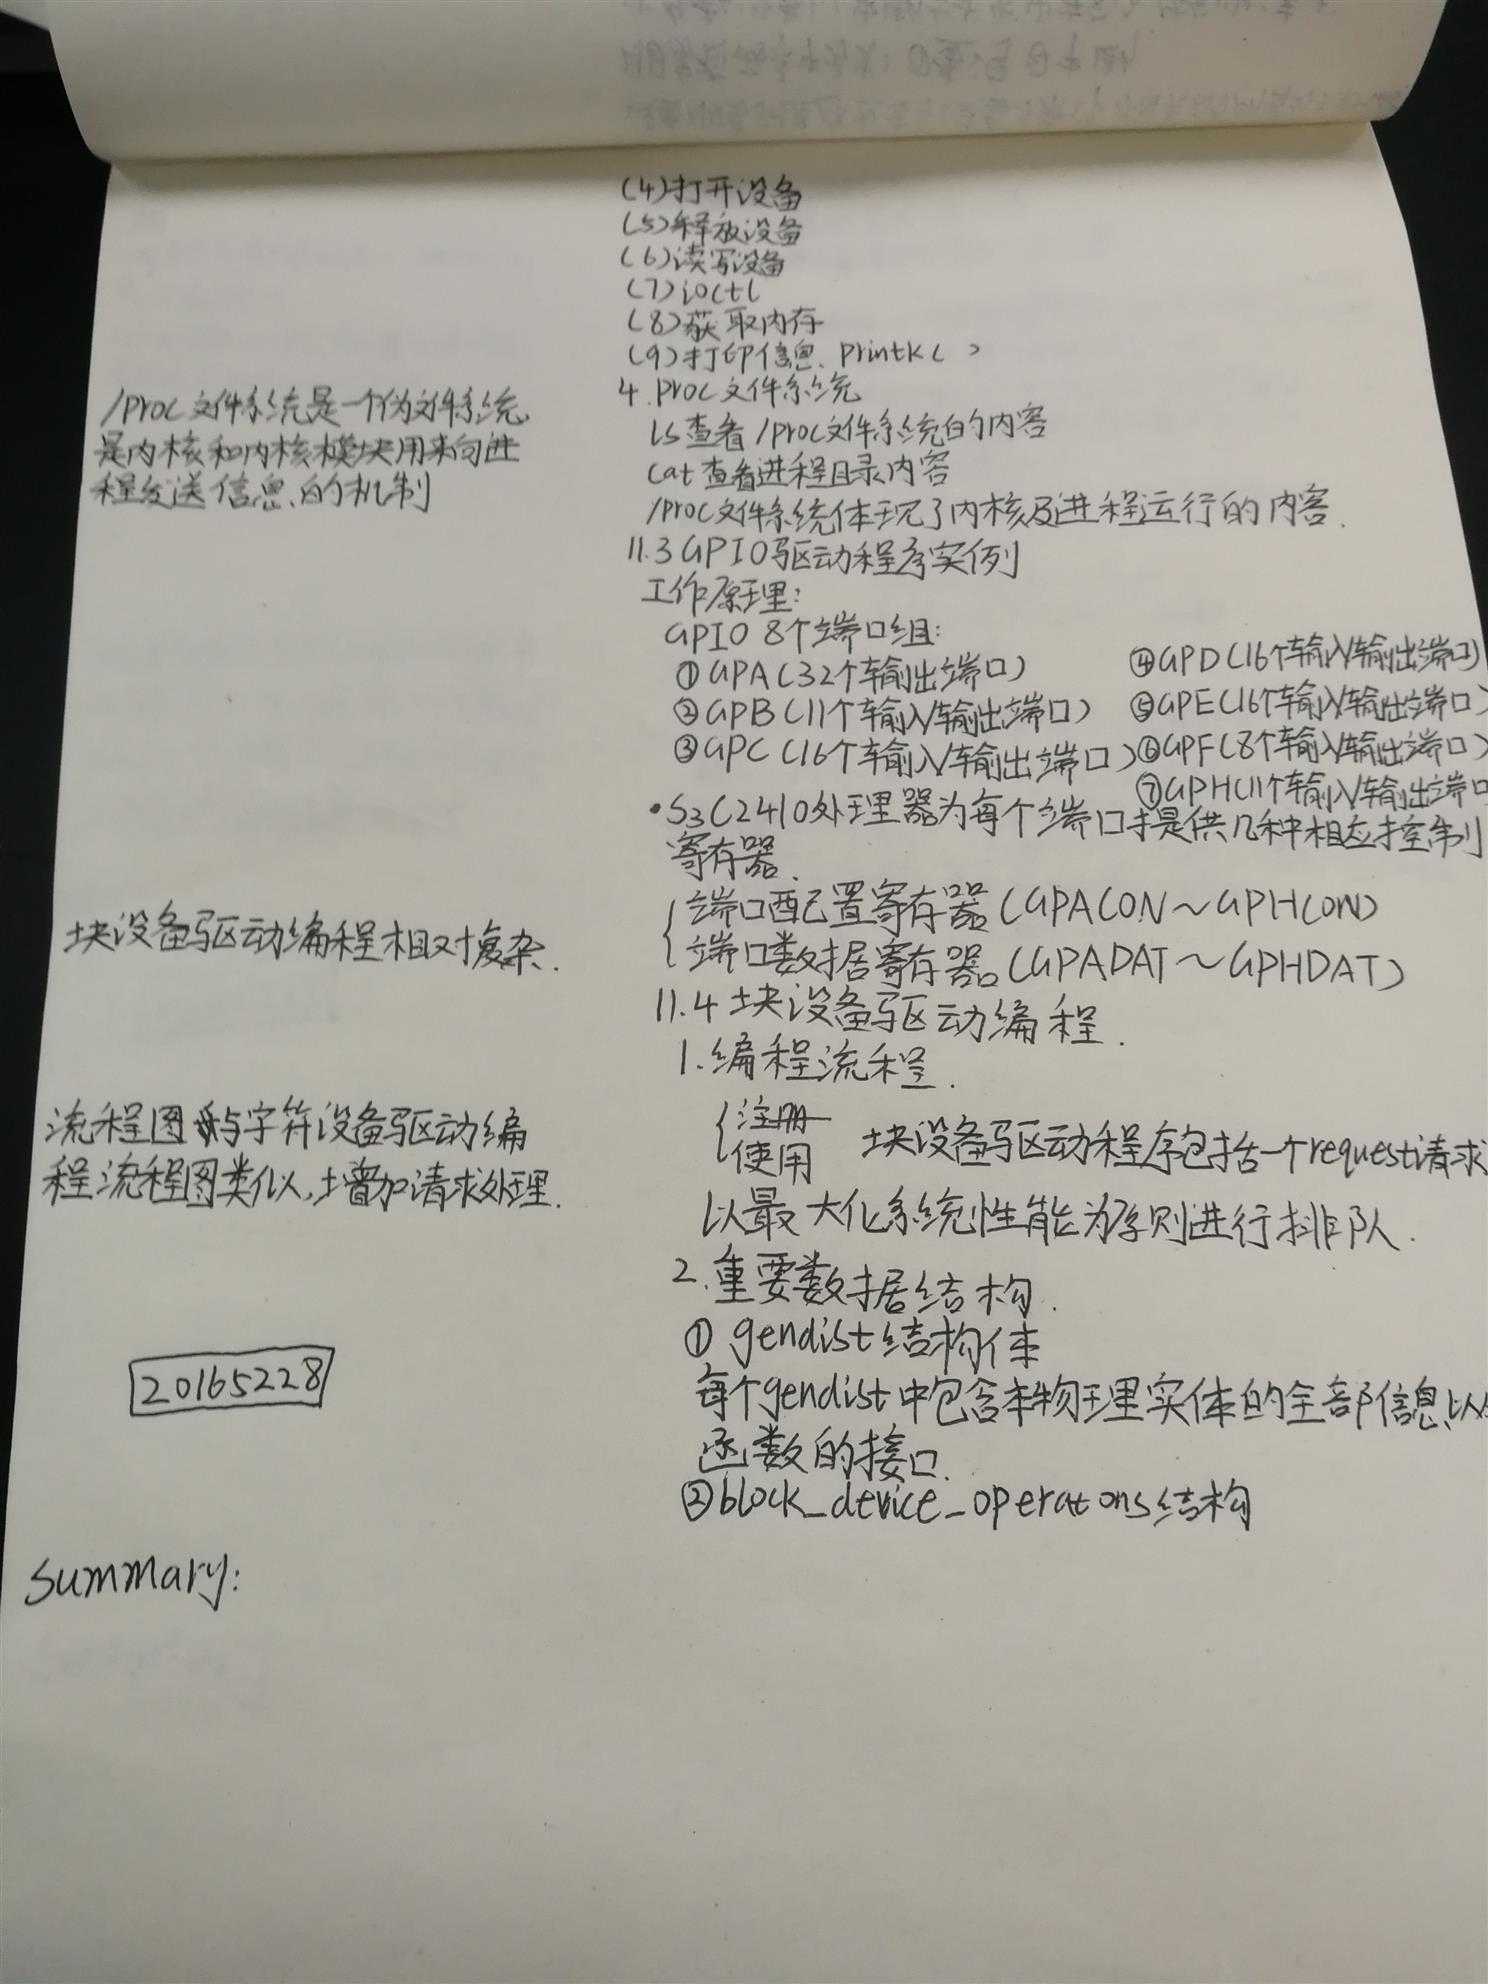 (4)打开设备
(5)释放设备
(6)读写设备
(7)ioctl
(8)获取内存
(9)打印信息. printk( )
4. proc文件系统
ls查看/proc文件系统的内容
cat查看进程目录内容
/proc文件系统体现了内核及进程运行的内容.
/proc文件系统是一个伪文件系统,
是内核和内核模块用来向进
程发送信息的机制
11.3 GPIO驱动程序实例
工作原理:
GPIO 8个端口组:
①GPA(32个输出端口)
②GPB(11个输入/输出端口)
③GPC(16个输入/输出端口)
④GPD(16个输入/输出端口)
⑤GPE(16个输入/输出端口)
⑥GPF(8个输入/输出端口)
⑦GPH(11个输入/输出端口
•S3C2410处理器为每个端口提供几种相应控制
寄存器.
端口配置寄存器(GPACON~GPHCON)
端口数据寄存器(GPADAT~GPHDAT)
块设备驱动编程相对复杂.
11.4 块设备驱动编程.
1.编程流程.
注册
使用 块设备驱动程序包括一个request请求
以最大化系统性能为原则进行排队.
流程图与字符设备驱动编
程流程图类似,增加请求处理.
2.重要数据结构.
① gendist结构体
每个gendist中包含本物理实体的全部信息以
函数的接口.
②block_device_operatons结构
20165228
summary: